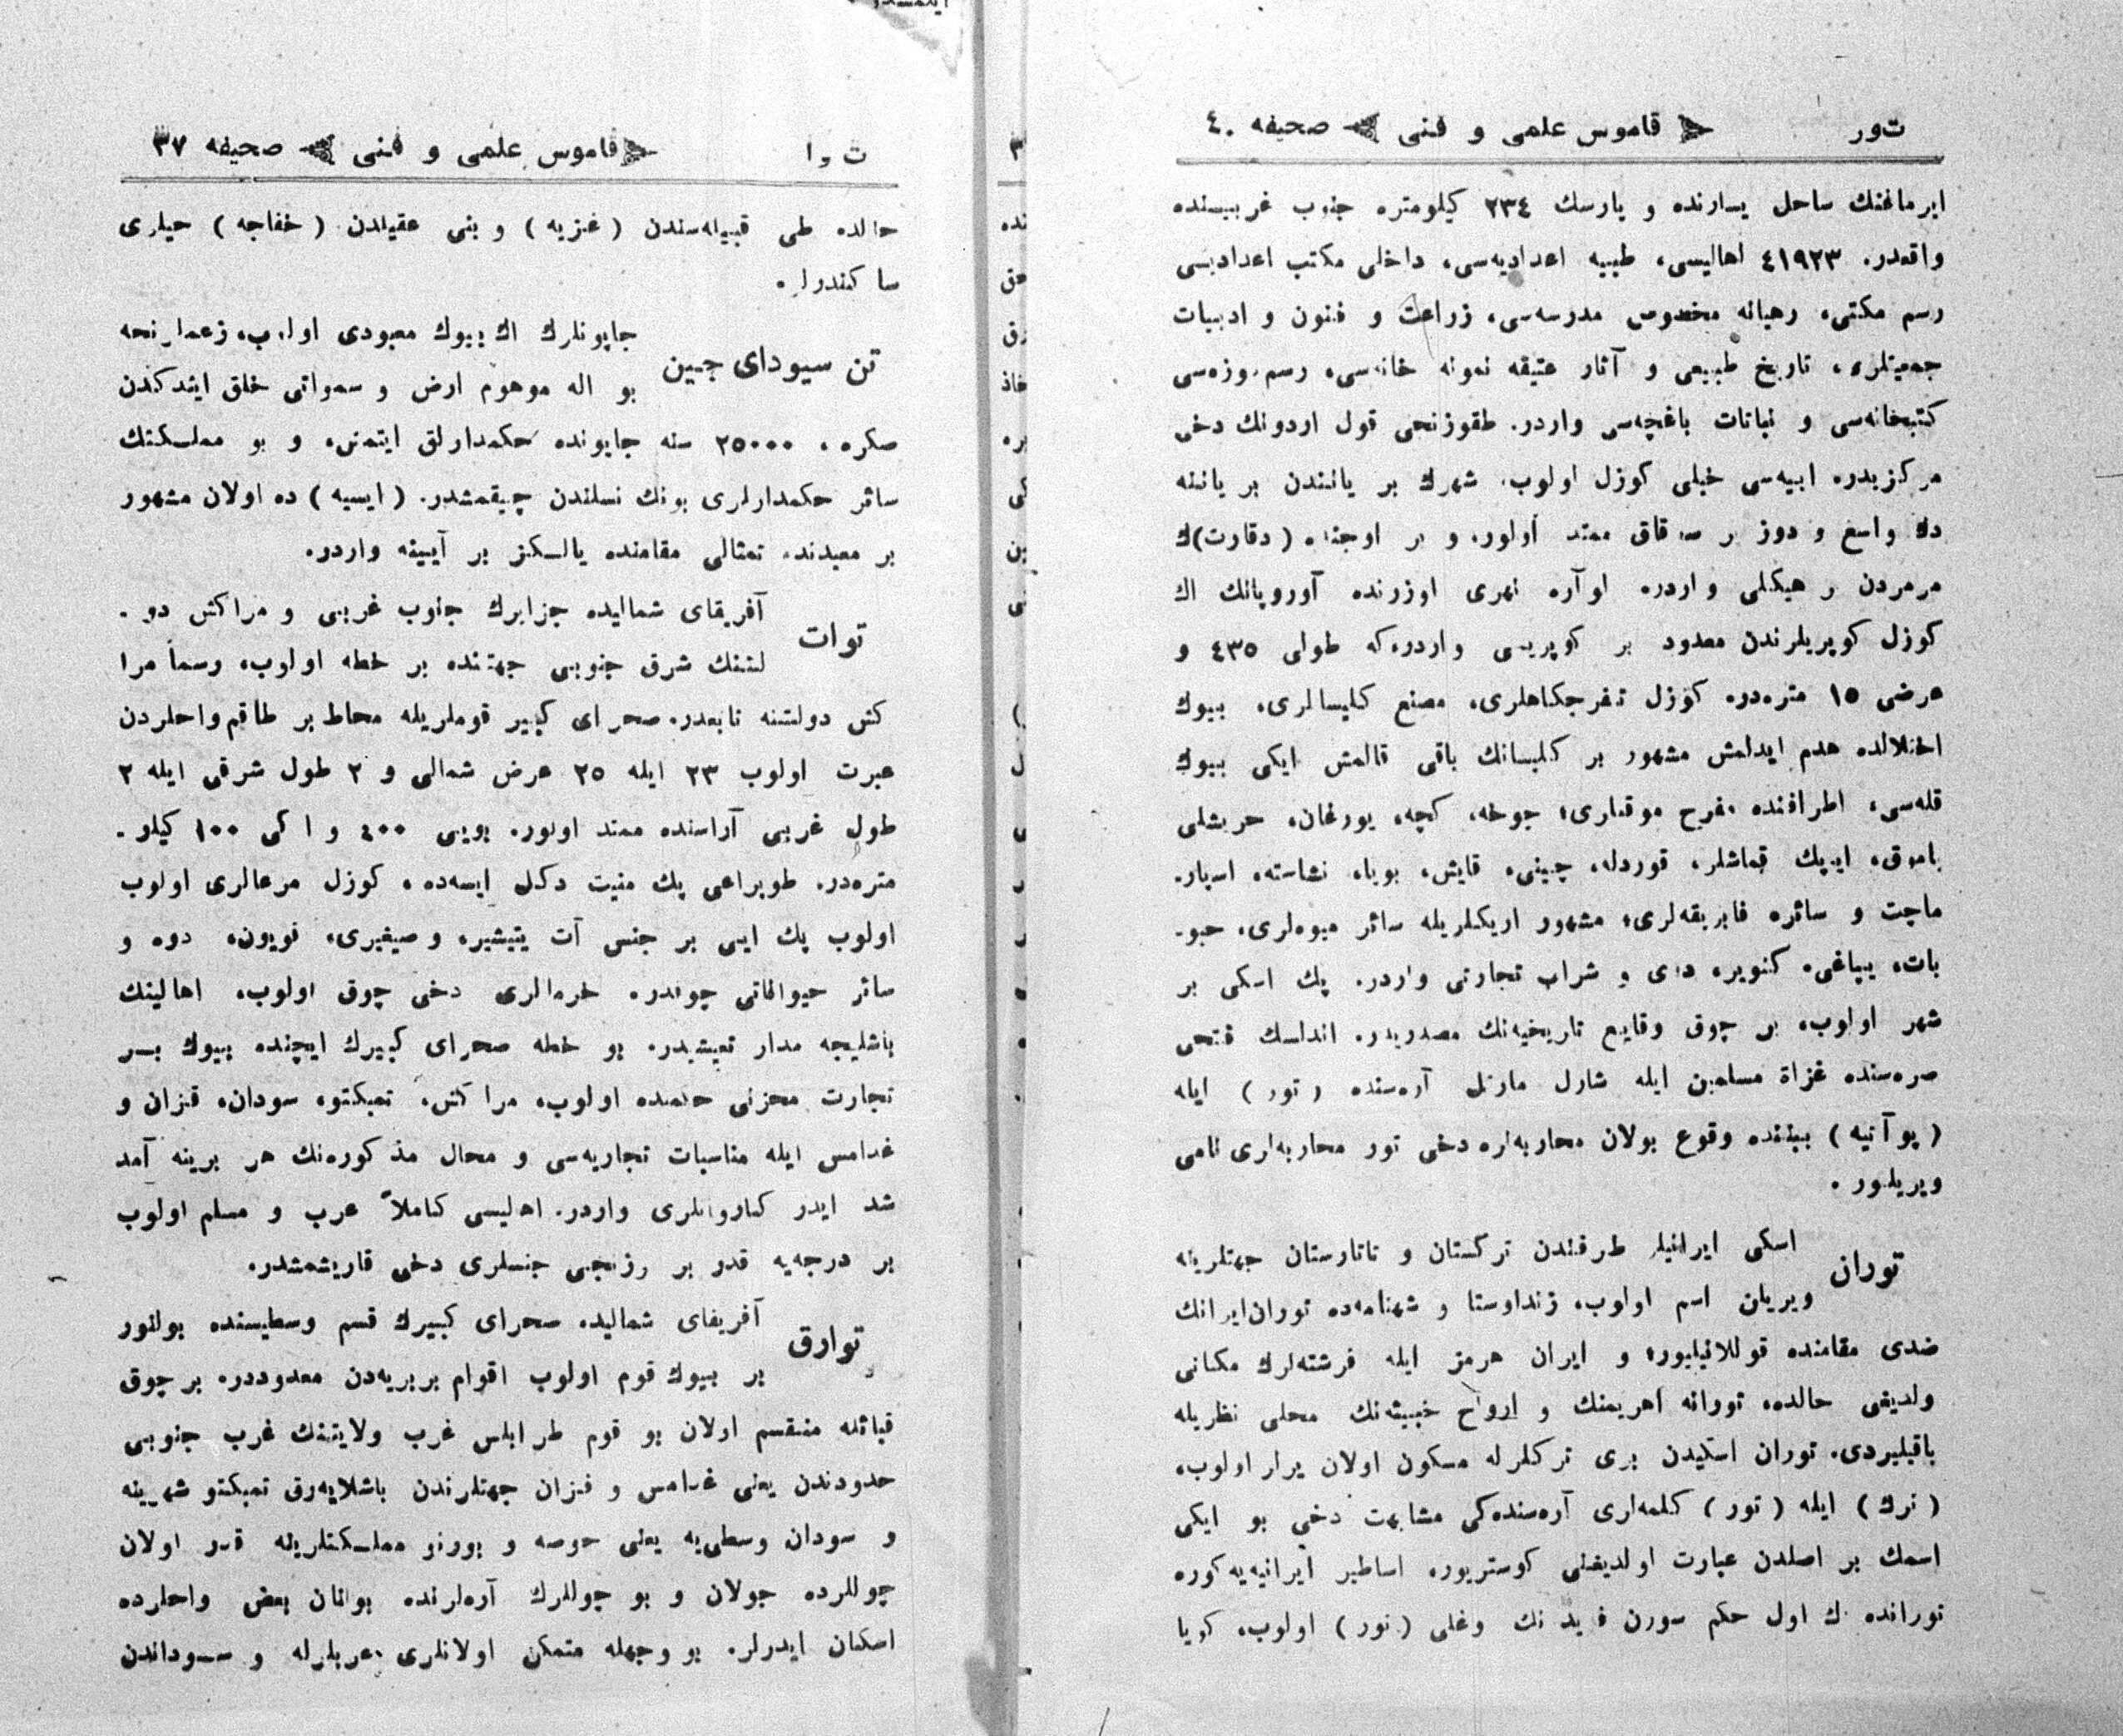 ت‌ور قاموس علمی و فنی صحیفه ٤٠
ایرماغنك ساحل یسارنده و پارسك ٢٣٤ کیلومتره جنوب غربیسنده
واقعدر. ٤١٩٢٣ اهالیسی، طبیه اعدادیه‌سی، داخلی مکتب اعدادیسی
رسم مکتبی، رهبانه مخصوص مدرسه‌سی، زراعت و فنون و ادبیات
جمعیتلری، تاریخ طبیعی و آثار عتیقه نمونه خانه‌سی، رسم موزه‌سی
کتبخانه‌سی و نباتات باغچه‌سی واردر. طقوزنجی قول اردونك دخی
مرکزیدر. ابنیه‌سی خیلی کوزل اولوب، شهرك بر یاننندن بر یاننه
دك واسع و دوز بر سوقاق ممتد اولور، و بر اوجنده (دقارت)ك
مرمردن بر هیکلی واردر. لوآره نهری اوزرنده آوروپانك اك
کوزل کوپریلرندن معدود بر کوپریسی واردرکه طولی ٤٣٥ و
عرضی ١٥ متره‌در. کوزل تفرجکاهلری، مصنع کلیسالری، بیوك
اختلالده هدم ایدلمش مشهور بر کلیسانك باقی قالمش ایکی بیوك
قله‌سی، اطرافنده مفرح موقعلری، جوخه، کچه، یورغان، حریشلی
پاموق، ایپك قماشلر، قوردله، چینی، قایش، بویا، نشاسته، اسپار-
ماچت و سائره فابریقه‌لری، مشهور اریکلریله سائر میوه‌لری، حبو-
بات، یپاغی، کنویر، دری و شراب تجارتی واردر. پك اسکی بر
شهر اولوب، بر چوق وقایع تاریخیه‌نك مصدریدر. اندلسك فتحی
صره‌سنده غزاة مسلمین ایله شارل مارتل آره‌سنده (تور) ایله
(پوآتیه) بیننده وقوع بولان محاربه‌لره دخی تور محاربه‌لری نامی
ویریلور.
توران
اسکی ایرانیلر طرفندن ترکستان و تاتارستان جهتلرینه
ویریلن اسم اولوب، زنداوستا و شهنامه‌ده توران ایرانك
ضدی مقامنده قوللانیلیور؛ و ایران هرمز ایله فرشته‌لرك مکانی
ولدیغی حالده، تورانه اهریمنك و ارواح خبیثه‌نك محلی نظریله
باقیلیردی. توران اسکیدن بری ترکلرله مسکون اولان یرلر اولوب،
(ترك) ایله (تور) کلمه‌لری آره‌سنده‌کی مشابهت دخی بو ایکی
اسمك بر اصلدن عبارت اولدیغنی کوستریور. اساطیر ایرانیه‌یه کوره
تورانده ك اول حکم سورن فریدونك وغلی (تور) اولوب، کویا
ت‌وا قاموس علمی و فنی صحیفه ٣٧
حالده طی قبیله‌سندن (غزیه) و بنی عقیلدن (خفاجه) حیلری
ساکندرلر.
تن سیودای جین
جاپونلرك اك بیوك معبودی اولوب، زعملرنجه
بو اله موهوم ارض و سمواتی خلق ایتدکدن
صکره، ٢٥٠٠٠٠ سنه جاپونده حکمدارلق ایتمش، و بو مملکتك
سائر حکمدارلری بونك نسلندن چیقمشدر. (ایسیه) ده اولان مشهور
بر معبدنده تمثالی مقامنده یالکز بر آیینه واردر.
توات
آفریقای شمالیده جزایرك جنوب غربی و مراکش دو-
لتنك شرق جنوبی جهتنده بر خطه اولوب، رسماً مرا
کش دولتنه تابعدر. صحرای کبیر قوملریله محاط بر طاقم واحلردن
عبرت اولوب ٢٣ ایله ٢٥ عرض شمالی و ٢ طول شرقی ایله ٢
طول غربی آراسنده ممتد اولور. بویی ٤٠٠ و اکی ١٠٠ کیلو-
متره‌در. طوپراغی پك منبت دکل ایسه‌ده، کوزل مرعالری اولوب
اولوب پك ایی بر جنس آت یتیشیر، و صیغیری، قویون، دوه و
سائر حیواناتی چوقدر. خرمالری دخی چوق اولوب، اهالینك
باشلیجه مدار تعیشیدر. بو خطه صحرای کبیرك ایچنده بیوك بر
تجارت مخزنی حکمنده اولوب، مراکش، تمبکتو، سودان، فزان و
غدامس ایله مناسبات تجاریه‌سی و محال مذکوره‌نك هر برینه آمد
شد ایدر کاروانلری واردر. اهالیسی کاملاً عرب و مسلم اولوب
بر درجه‌یه قدر بر رزنجی جنسلری دخی قاریشمشدر.
توارق
آفریقای شمالیده صحرای کبیرك قسم وسطیسنده بولنور
بر بیوك قوم اولوب اقوام بربریه‌دن معدوددر. بر چوق
قبائله منقسم اولان بو قوم طرابلس غرب ولایتنك غرب جنوبی
حدودندن یعنی غدامس و فزان جهتلرندن باشلایه‌رق تمبکتو شهرینه
و سودان وسطی‌یه یعنی حوصه و بورنو مملکتلرینه قدر اولان
چوللرده جولان و بو چوللرك آره‌لرنده بولنان بعض واحلرده
اسکان ایدرلر. بو وجهله متمکن اولانلری عربلرله و سوداندن